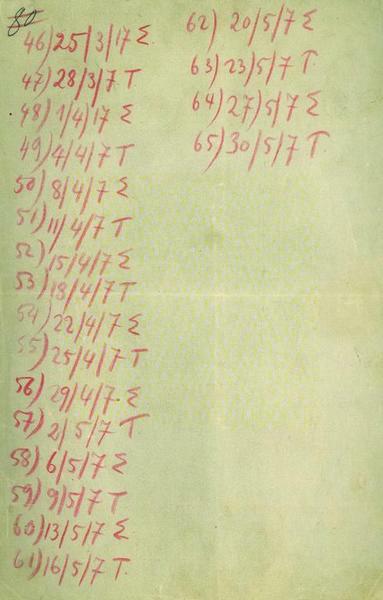 80
46) 25/3/17 Σ
47) 28/3/7 Τ
48) 1/4/17 Σ
49) 4/4/7 Τ
50) 8/4/7 Σ
51) 11/4/7 Τ
52) 15/4/7 Σ
53) 18/4/7 Τ
54) 22/4/7 Σ
55) 25/4/7 Τ
56) 29/4/7 Σ
57) 2/5/7 Τ
58) 6/5/7 Σ
59) 9/5/7 Τ
60) 13/5/7 Σ
61) 16/5/7 Τ
62) 20/5/7 Σ
63) 23/5/7 Τ
64) 27/5/7 Σ
65) 30/5/7 Τ